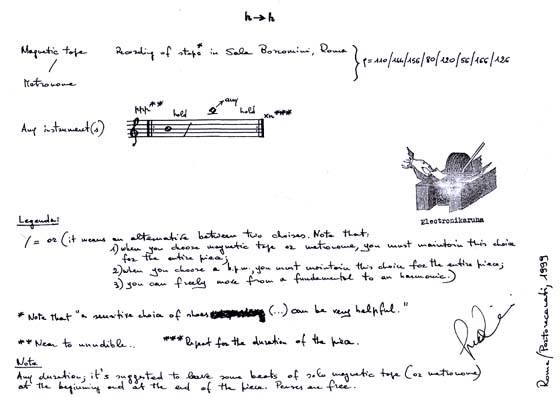 h → h
Magnetic tape
/
Metronome
Recording of steps* in Sala Borromini, Roma
= 110/144/156/80/120/56/166/126
Any instrument(s)
ppp** hold any hold xn***
Electronikaruna
Legenda:
/ = or (it means an alternative between two choises. Note that:
1) when you choose magnetic tape or metronome, you must maintain this choice
for the entire piece;
2) when you choose a b.p.m., you must maintain this choice for the entire piece;
3) you can freely move from a fundamental to an harmonic.)
* Note that "a sensitive choice of shoes (...) can be very helpful."
** Near to unudible.. *** Repeat for the duration of the piece.
Note
Any duration; it's suggested to leave some beats of solo magnetic tape (or metronome)
at the beginning and at the end of the piece. Pauses are free.
Roma/Portorecanati, 1999